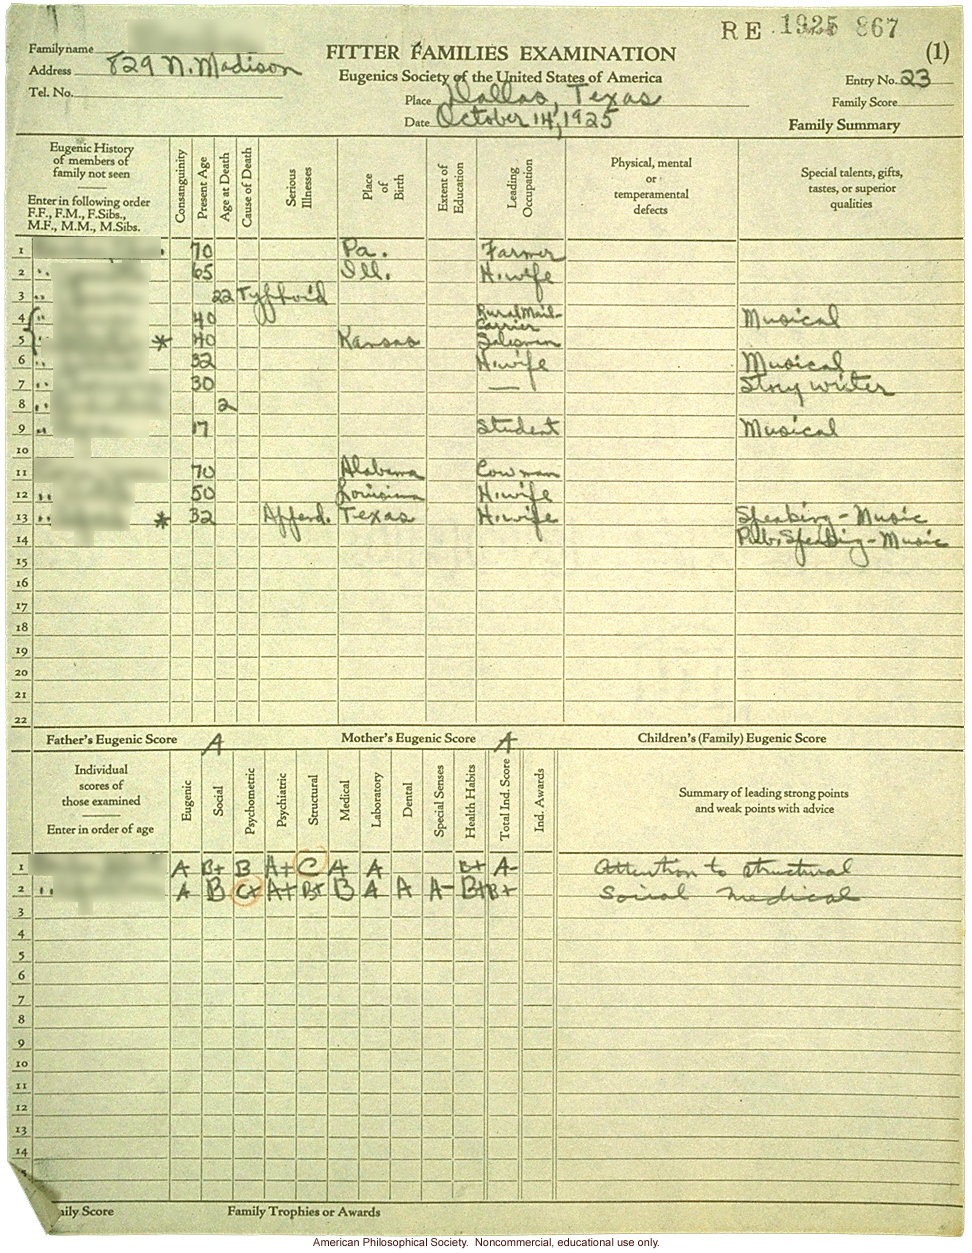 RE 1925 867
Family name
Address 829 N. Madison
Tel. No.
FITTER FAMILIES EXAMINATION
Eugenics Society of the United States of America
Place Dallas, Texas
Date October 14, 1925
(1)
Entry No. 23
Family Score
Family Summary
Eugenic History
of members of
family not seen
Enter in following order
F.F., F.M., F.Sibs.,
M.F., M.M., M.Sibs.
Consanguinity
Present Age
Age at Death
Cause of Death
Serious
Illnesses
Place
of
Birth
Extent of
Education
Leading
Occupation
Physical, mental
or
temperamental
defects
Special talents, gifts,
tastes, or superior
qualities
1 70 Pa. Farmer
2 " 65 Ill. H.wife
3 " 22 Typhoid
4 " 40 Rural Mail-Carrier Musical
5 " * 40 Kansas Salesman
6 " 32 H.wife Musical
7 " 30 — Story writer
8 " 2
9 " 17 Student Musical
10
11 70 Alabama Cowman
12 " 50 Louisiana H.wife
13 " * 32 Append. Texas H.wife Speaking - Music
14 Pub. Speaking - Music
15
16
17
18
19
20
21
22
Father's Eugenic Score A Mother's Eugenic Score A Children's (Family) Eugenic Score
Individual
scores of
those examined
Enter in order of age
Eugenic
Social
Psychometric
Psychiatric
Structural
Medical
Laboratory
Dental
Special Senses
Health Habits
Total Ind. Score
Ind. Awards
Summary of leading strong points
and weak points with advice
1 A B+ B A+ C A A B+ A- Attention to structural
2 " A B C+ A+ B+ B A A A- B+ B+ Social medical
3
4
5
6
7
8
9
10
11
12
13
14
Family Trophies or Awards
American Philosophical Society. Noncommercial, educational use only.